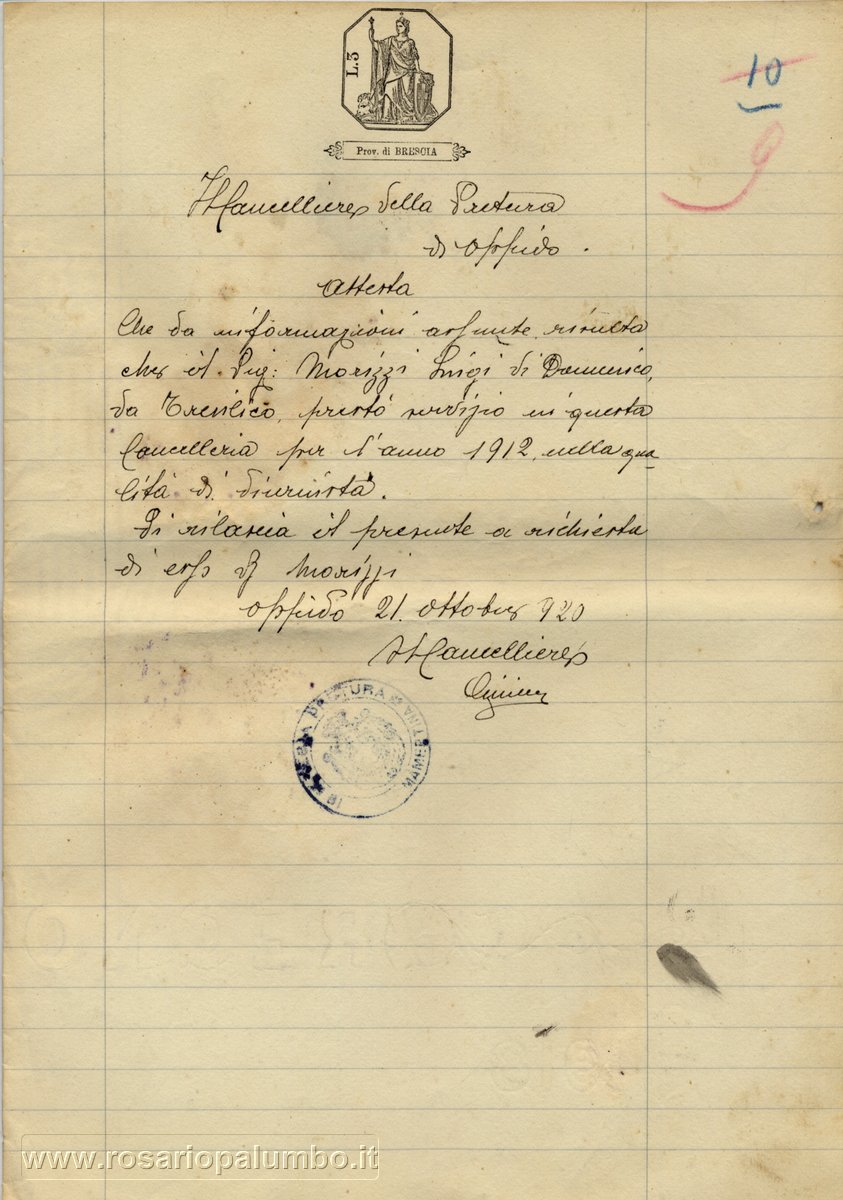 L.3
Prov. di BRESCIA
10
9
Il Cancelliere della Pretura
di Oppido.
Attesta
Che da informazioni assunte risulta
che il Sig: Morizzi Luigi di Domenico,
da Tresilico, prestó servizio in questa
Cancelleria per l'anno 1912, nella qua-
lità di diurnista.
Si rilascia il presente a richiesta
di esso Sr Morizzi
Oppido 21. Ottobre 920
Il Cancelliere
REGIA PRETURA DI
MAMERTINA
www.rosariopalumbo.it